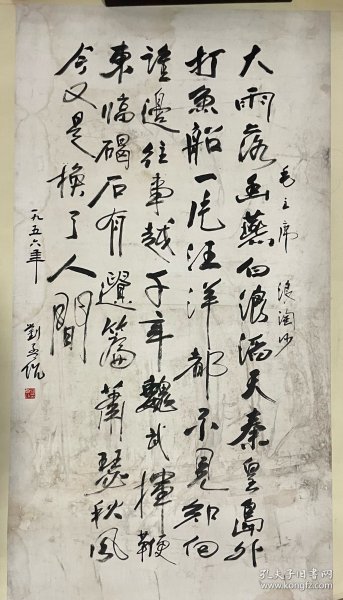 毛主席 浪淘沙
大雨落幽燕白浪滔天秦皇島外
打魚船一片汪洋都不見知向
誰邊往事越千年魏武揮鞭
東臨碣石有遺篇蕭瑟秋風
今又是換了人間
一九五六年 劉孟伉
孔夫子旧书网